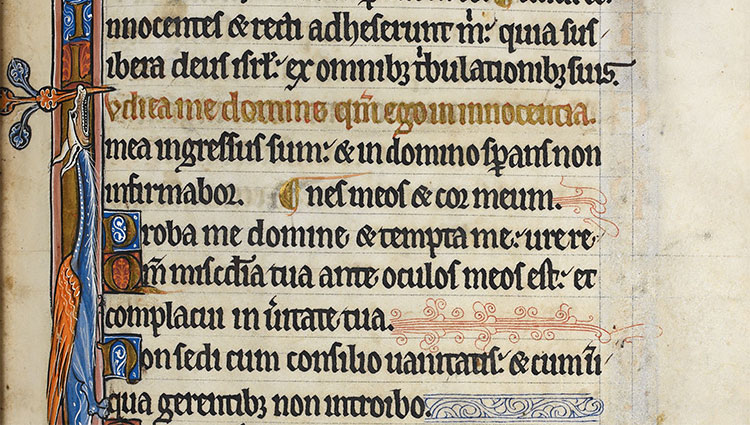 Innocentes & recti adheserunt m̄: quia sus
Libera deus isrl̄: ex omnibꝫ t̄bulationibꝫ suis.
Iudica me domine qm̄ ego in innocentia.
mea ingressus sum: & in domino sp̄ans non
infirmabor. ¶ nes meos & cor meum.
Proba me domine & tempta me: ure re
Qm̄ misc̄dia tua ante oculos meos est: et
complacui in ūitate tua.
Non sedi cum consilio uanitatis: & cum īi
qua gerentibꝫ non introibo.